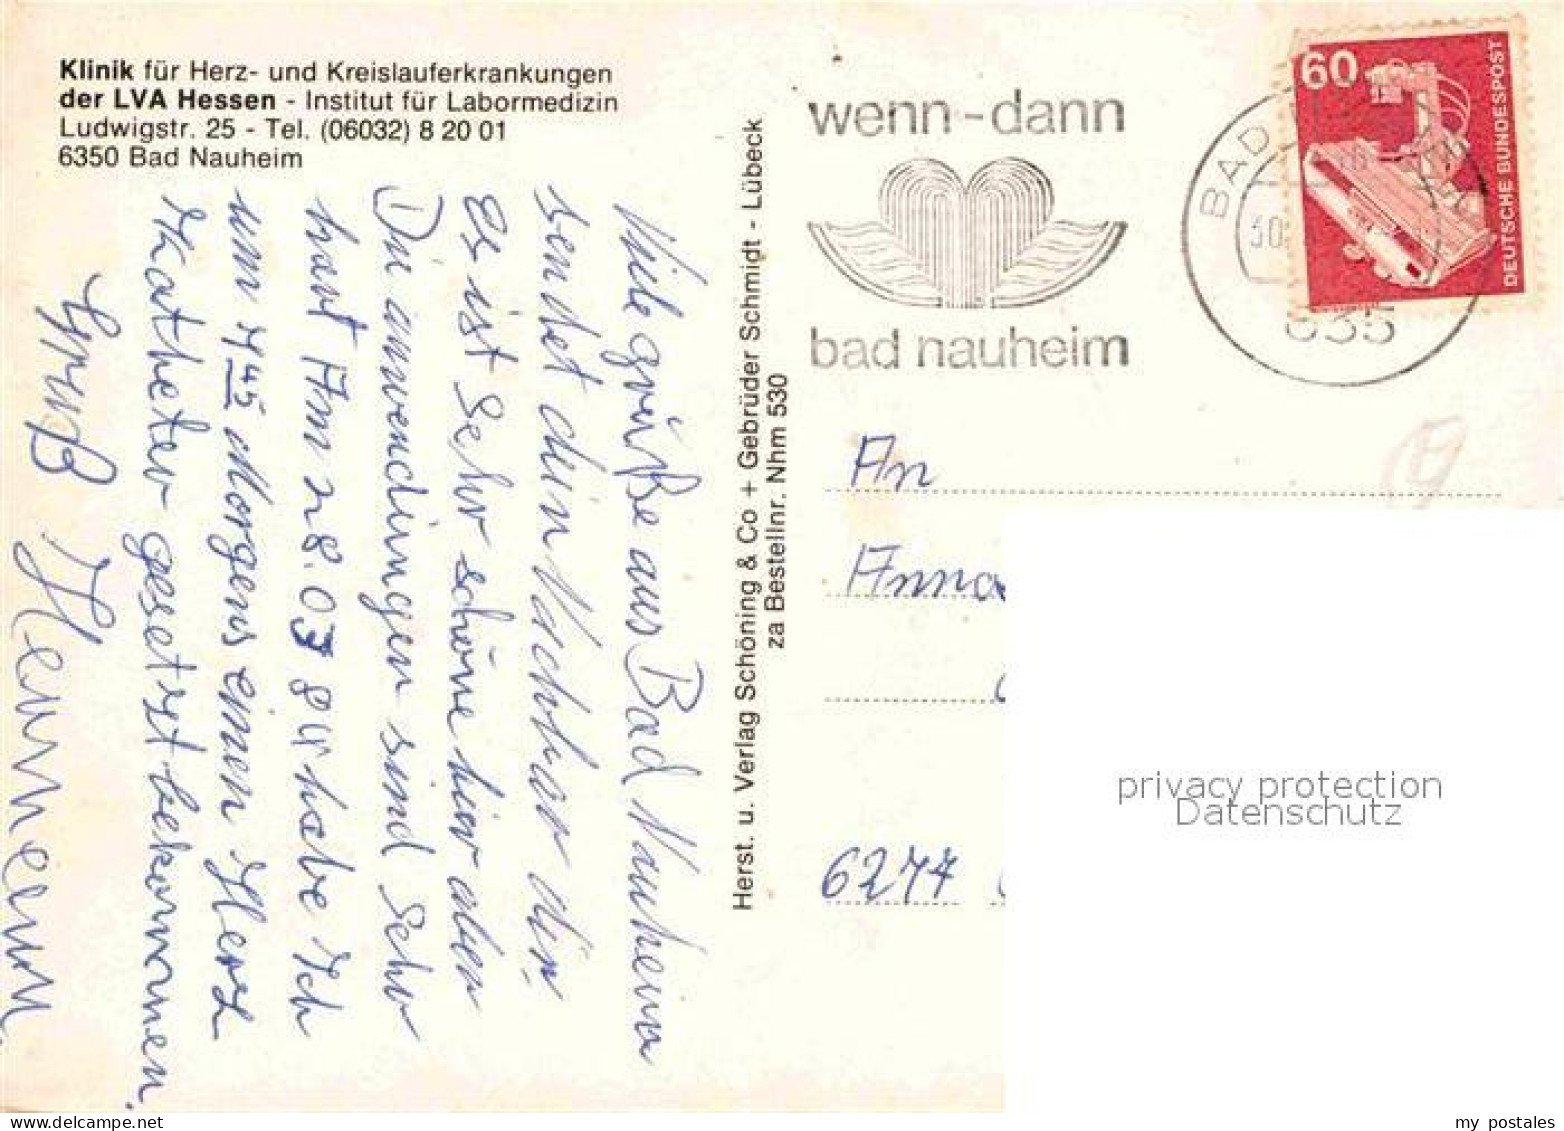 Klinik für Herz- und Kreislauferkrankungen
der LVA Hessen - Institut für Labormedizin
Ludwigstr. 25 - Tel. (06032) 8 20 01
6350 Bad Nauheim
Viele grüße aus Bad Nauheim
sendet dein Nachbar dir.
Es ist Sehr schöne hier aber
Die anwendungen sind Sehr
hart Am 28.03 84 habe Ich
um 7 45 Morgens einen Herz
Katheter gesetzt bekommen.
Gruß
Herst. u. Verlag Schöning & Co + Gebrüder Schmidt - Lübeck
za Bestellnr. Nhm 530
wenn - dann
bad nauheim
BAD
30
635
60
DEUTSCHE BUNDESPOST
An
Anna
6277
privacy protection
Datenschutz
my postales